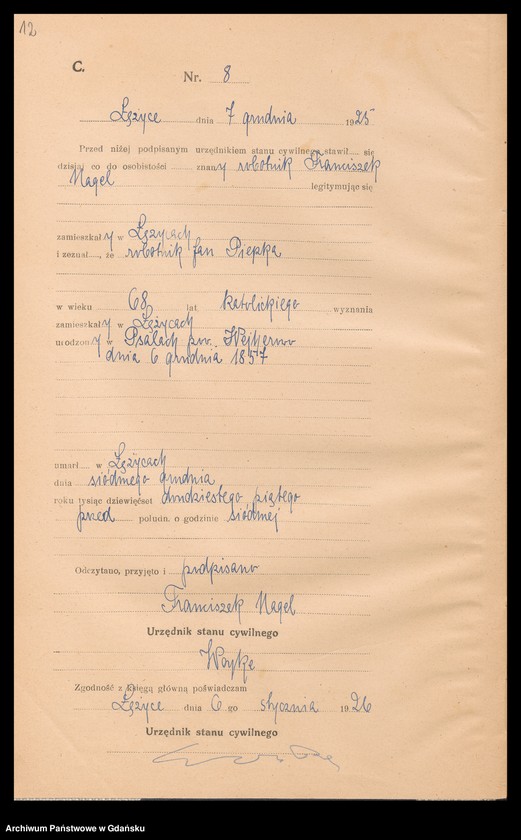 12
C.
Nr. 8
Łężyce dnia 7 grudnia 1925
Przed niżej podpisanym urzędnikiem stanu cywilnego stawił.... się
dzisiaj co do osobistości ........ znany robotnik Franciszek
Nagel legitymując się
zamieszkały w Łężycach
i zeznał...., że robotnik Jan Piepka
w wieku 68 lat katolickiego wyznania
zamieszkały w Łężycach
urodzony w Psalach pow. Wejherowo
dnia 6 grudnia 1857
umarł.... w Łężycach
dnia siódmego grudnia
roku tysiąc dziewięćset dwudziestego piątego
przed połudn. o godzinie siódmej
Odczytano, przyjęto i podpisano
Franciszek Nagel
Urzędnik stanu cywilnego
Woyke
Zgodność z księgą główną poświadczam
Łężyce dnia 6 go stycznia 1926
Urzędnik stanu cywilnego
Archiwum Państwowe w Gdańsku